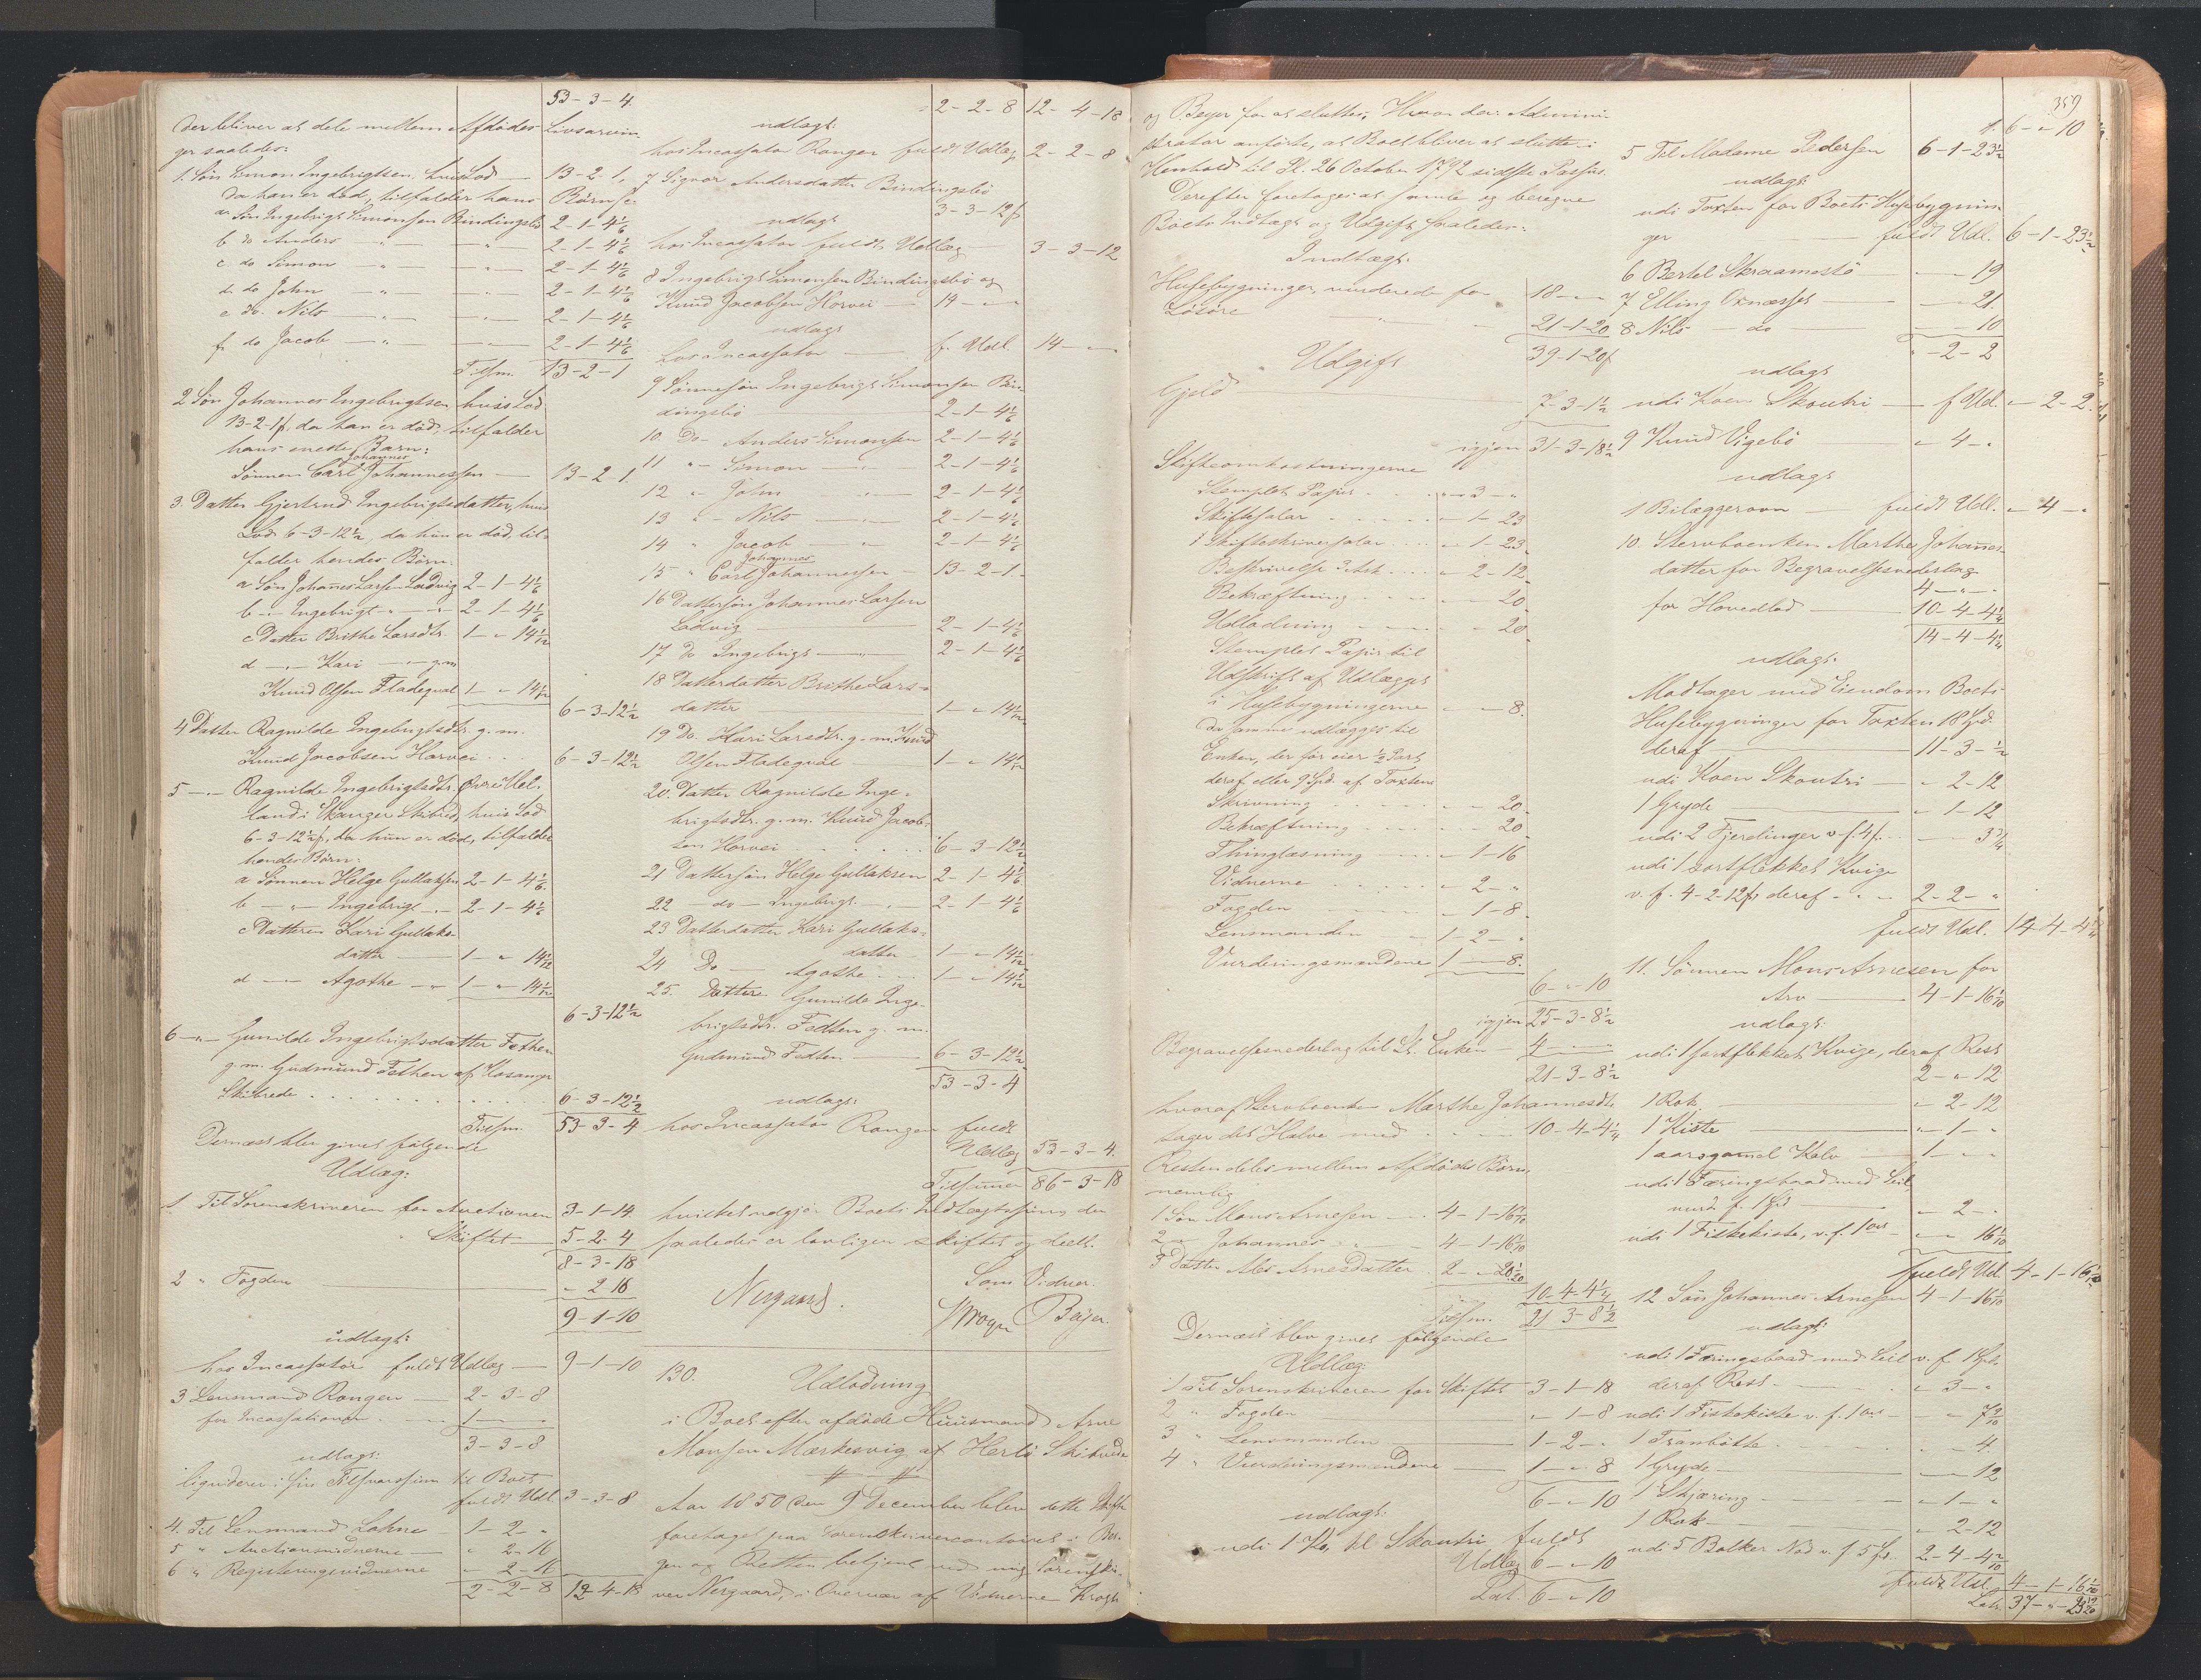 53-3-4.
der bliver at dele mellem Afdødes Livsarvin-
ger saaledes:
1. Søn Simon Ingebrigtsen, hvis Lod — 13-2-1,
da han er død, tilfalder hans Børn:
a Søn Ingebrigt Simonsen Bindingsbø 2-1-4 1/6
b do Anders — " — 2-1-4 1/6
c do Simon — " — 2-1-4 1/6
d do John — " — 2-1-4 1/6
e do Nils — " — 2-1-4 1/6
f do Jacob — " — 2-1-4 1/6
Tilsm. 13-2-1
2 Søn Johannes Ingebrigtsen, hvis Lod
13-2-1 s, da han er død, tilfalder
hans eneste Barn:
Sønnen Carl Johannes Johannessen — 13-2-1.
3. Datter Gjertrud Ingebrigtsdatter, hvis
Lod 6-3-12 1/2, da hun er død, til-
falder hendes Børn:
a Søn Johannes Larsen Ladvig 2-1-4 1/6
b — " — Ingebrigt — " — 2-1-4 1/6
c Datter Brithe Larsdtr. 1 - " - 14 1/12
d — " — Kari — " — g. m.
Knud Olsen Fladeqval 1 - " - 14 1/12
6-3-12 1/2
4 Datter Ragnilde Ingebrigtsdtr. g. m.
Knud Jacobsen Horvei . . . 6-3-12 1/2
5 — " — Ragnilde Ingebrigtsdtr. Øvre
land i Skanger Skibred, hvis Lod
6-3-12 1/2 s, da hun er død, tilfalder
hendes Børn:
a Sønnen Helge Gullaksen 2-1-4 1/6
b — " — Ingebrigt — " — 2-1-4 1/6
c Datteren Kari Gullaks-
datter — 1 - " - 14 1/12
d — " — Agathe — " — 1 - " - 14 1/12
6-3-12 1/2
6 — " — Gunilde Ingebrigtsdatter Fethen
g. m. Gudmund Fethen af
Skibrede . . . . 6-3-12 1/2
Tilsm. 53-3-4
Dernæst blev givet følgende
Udlæg:
1 Til Sorenskriveren for Auctionen 3-1-14
" Skiftet — 5-2-4
8-3-18
2 " Fogden — " - 2 16
9-1-10
udlagt:
hos Incassator fuldt Udlæg — 9-1-10
3 Lensmand Ronger — 2-3-8
for Incassationen . — 1 - " - "
3-3-8
udlagt:
liqviderer i sin Tilsvarssum til Boet
fuldt Udl. 3-3-8
4. Til Lensmand Lohne — 1-2- "
5 " Auctionsvidnerne — " 2-16
6 " Registeringsvidnerne " 2-16
2-2-8 12-4-18
2-2-8 12-4-18
udlagt:
hos Incassator Ronger fuldt Udlæg 2-2-8
7 Signor Andersdatter Bindingsbø
3-3-12 s
udlagt
hos Incassator fuldt Udlæg 3-3-12
8 Ingebrigt Simonsen Bindingsbø og
Knud Jacobsen Horvei — 14 - " - "
udlagt
hos Incassator — f. Udl. 14 - " - "
9 Sønnesøn Ingebrigt Simonsen Bin-
dingsbø — 2-1-4 1/6
10. Do — Anders Simonsen 2-1-4 1/6
11 " — Simon — " — 2-1-4 1/6
12 " John — " — 2-1-4 1/6
13 " — Nils — " — 2-1-4 1/6
14 " Jacob — " — 2-1-4 1/6
15 " Carl Johannes Johannessen — 13-2-1. -
16 Dattersøn Johannes Larsen
Ladvig — 2-1-4 1/6
17 Do Ingebrigt — " — 2-1-4 1/6
18 Datterdatter Brithe Lars-
datter — 1 - " - 14 1/12
19 Do. Kari Larsdtr. g. m. Knud
Olsen Fladeqval — 1 - " - 14 1/12
20. Datter Ragnilde Inge-
brigtsdtr. g. m. Knud Jacob-
sen Horvei . . . . 6-3-12 1/2
21 Dattersøn Helge Gullaksen 2-1-4 1/6
22 — do — Ingebrigt — " — 2-1-4 1/6
23 Datterdatter Kari Gullaks-
datter — 1 - " - 14 1/12
24 Do — Agathe . . . 1 - " - 14 1/12
25. Datter Gunilde Inge-
brigtsdtr. Fedten g. m.
Gudmund Fedten — 6-3-12 1/2
53-3-4
udlagt:
hos Incassator Ronger fuldt
Udlæg 53-3-4.
Tilsummen 86-3-18
hvilket udgjør Boets Indtægtssum der
saaledes er lovligen skiftet og deelt.
Som Vidner.
Nergaard. Krogh Beyer.
130. Udlodning
i Boet efter afdøde Huusmand Arne
Monsen Mærkesvig af Herlø Skibrede
Aar 1850 den 9 December blev dette Skifte
foretaget paa Sorenskrivercontoiret i Ber-
gen og Retten betjent ved mig Sorenskri-
ver Nergaard, i Overvær af Vidnerne Krogh
359
og Beyer for at sluttes. Hvor da Admini-
strator anførte, at Boet bliver at slutte i
Henhold til Pl. 26 October 1792 sidste Passus.
Derefter foretoges at samle og beregne
Boets Indtægt og Udgift saaledes:
Indtægt:
Husebygninger, vurderede for 18 - " - "
Løsøre — " — 21-1-20
39-1-20 s
Udgift
Gjeld — 7-3-1 1/2
igjen 31-3-18 1/2
Skifteomkostningerne
Stemplet Papir . . . " - 3 - "
Skiftesalar . . . . " 1-23
1/ Skifteskriversalar . . . " 1-23
Beskrivelse 3 Ark . . . " 2-12
Bekræftning . . . . " 20
Udlodning . . . . " 20
Stemplet Papir til
Udskrift af Udlægget
i Husebygningerne " - " 8.
Da samme udlægges til
Enken, der før eier 1/2 Part
deraf eller 9 Spd. af Taxten
Skrivning . . . . " " 20.
Bekræftning . . . . " 20
Thinglæsning . . . " 1-16
Vidnerne . . . . " 2 - "
Fogden . . . . " 1-8
Lensmanden — 1-2 - "
Vurderingsmændene 1 - " - 8.
6 - " - 10
igjen 25-3-8 1/2
Begravelsesnedertag til St. Enken — 4 - " - "
21-3-8 1/2
hvoraf Stervboenken Marthe Johannesdtr.
tager det Halve med . . . 10-4-4 1/4
Resten deles mellem Afdødes Børn,
nemlig
1 Søn Mons Arnesen — 4-1-16 1/10
2 " Johannes " — 4-1-16 1/10
3 Datter Arnesdatter 2 - " 20 1/20
10-4-4 1/4
Tilsm. 21 3-8 1/2
Dernæst blev givet følgende
Udlæg:
1 Til Sorenskriveren for Skiftet 3-1-18
2 " Fogden — " 1-8
3 " Lensmanden — 1-2- "
4 " Vurderingsmændene — 1 - " 8
6 - " 10
udlagt:
udi 1 Ko, kl. Skoutri fuldt
Udlæg 6 - " 10
Lat. 6 - " 10
tr. 6 - " 10
5 Til Madame Pedersen 6-1-23 1/2
udlagt:
udi Taxten for Boets Husebygnin-
ger — fuldt Udl. 6-1-23 1/2
6 Bertel Skraamestø — " — 19
7 Elling Oxnæsset — " — 21
8 Nils — do — " — 10
" - 2-2
udlagt
udi Koen Skoutri — f Udl. " 2-2.
9 Knud Vigebø — " 4 - "
udlagt
1 Bilæggerovn — fuldt Udl. " 4 - "
10. Stervboenken Marthe Johannes-
datter for Begravelsesnedertag
4 - " - "
for Hovedlod — 10-4-4 1/4
14-4-4 1/4
udlagt:
Modtager med Eiendom Boets
Husebygninger for Taxten 18 Spd.
deraf — 11-3 - 1/2
udi Koen Skoutri — " 2-12
1 Gryde — " 1-12
udi 2 Fjerdinger v. f. 4 s. . . — 3 3/4
udi 1 sortflekket Kvige
v. f. 4-2-12 s, deraf . . . 2-2 - "
fuldt Udl. 14-4-4 1/4
11. Sønnen Mons Arnesen for
Arv — 4-1-16 1/10
udlagt:
udi 1 sortflekket Kvige, deraf Rest
2 - " 12
1 Rok — " 2-12
1 Kiste — " 1 - "
1 aarsgamel Kalv — 1 - " - "
udi 1 Færingsbaad med Seil,
vurd. f. 1 Spd — " 2 - "
udi 1 Fiskekiste, v. f. 1 ort — " " 16 1/10
fuldt Udl. 4-1-16 1/10
12 Søn Johannes Arnesen 4-1-16 1/10
udlagt:
udi 1 Færingsbaad med Seil v. f. 1 Spd.
deraf Rest — " 3 - "
udi 1 Fiskekiste v. f. 1 ort — " 7 9/10
1 Tranbøtte . . . . " 4
1 Gryde — " — 12
1 Skjæring — " 1 - "
1 Rok — " 2-12
udi 5 Bolker Nod v. f. 5 Sp. 2-4-4 2/10
fuldt Udl. 4-1-16 1/10
Lat. 37 - " - 23 19/20